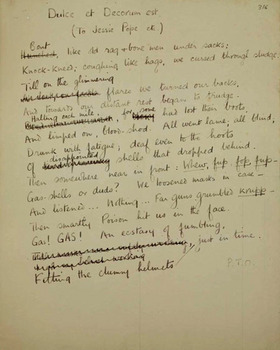 216
Dulce et Decorum est
(To Jessie Pope etc)
Bent
like old rag & bone men under sacks;
Knock-kneed; coughing like hags, we cursed through sludge,
Till on the glimmering
flares we turned our backs,
And towards our distant rest began to trudge.
Halting each mile, for some
had lost their boots,
And limped on, blood-shod. All went lame; all blind;
Drunk with fatigue; deaf even to the hoots
disappointed
Of shells that dropped behind.
Then somewhere near in front: Whew, fup, fop, fup
Gas-shells or duds? We loosened masks in case —
And listened... Nothing... Far guns grumbled Krupp —
Then smartly Poison hit us in the face.
Gas! GAS! An ecstasy of fumbling.
just in time.
Fitting the clumsy helmets
P.T.O.